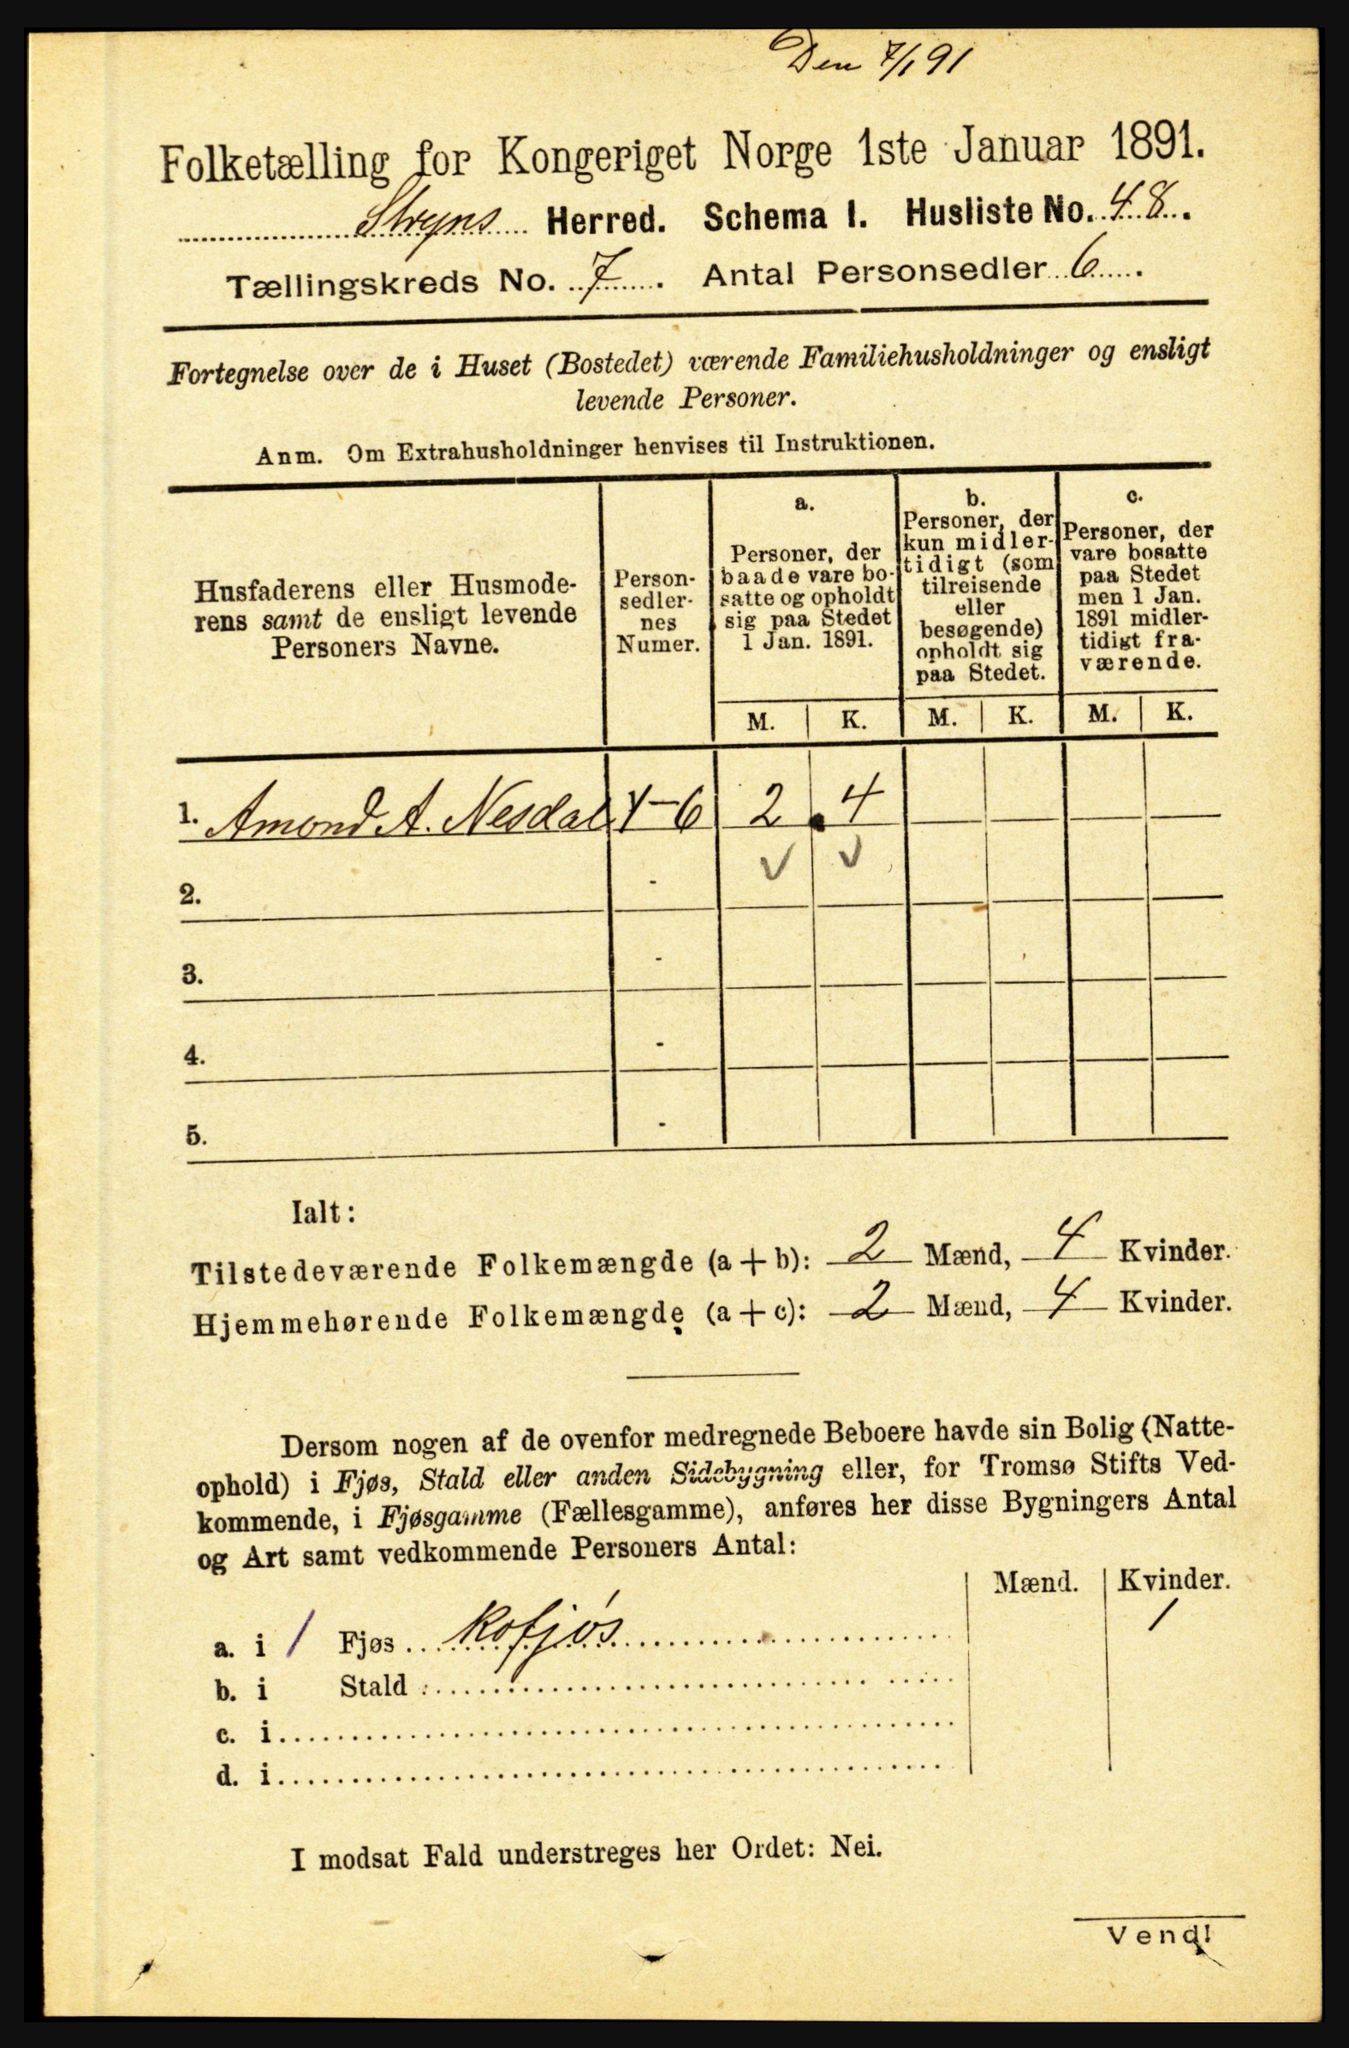 Den 7/1 91
Folketælling for Kongeriget Norge 1ste Januar 1891.
Stryns Herred. Schema I. Husliste No. 48.
Tællingskreds No. 7. Antal Personsedler 6.
Fortegnelse over de i Huset (Bostedet) værende Familiehusholdninger og ensligt
levende Personer.
Anm. Om Extrahusholdninger henvises til Instruktionen.
Husfaderens eller Husmode-
rens samt de ensligt levende
Personers Navne.
Person-
sedler-
nes
Numer.
a.
Personer, der
baade vare bo-
satte og opholdt
sig paa Stedet
1 Jan. 1891.
b.
Personer, der
kun midler-
tidigt (som
tilreisende
eller
besøgende)
opholdt sig
paa Stedet.
c.
Personer, der
vare bosatte
paa Stedet
men 1 Jan.
1891 midler-
tidigt fra-
værende.
M. K. M. K. M. K.
1. Amond A. Nesdal 1-6 2 4
2. -
3. -
4. -
5. -
Ialt:
Tilstedeværende Folkemængde (a + b): 2 Mænd, 4 Kvinder.
Hjemmehørende Folkemængde (a + c): 2 Mænd, 4 Kvinder.
Dersom nogen af de ovenfor medregnede Beboere havde sin Bolig (Natte-
ophold) i Fjøs, Stald eller anden Sidebygning eller, for Tromsø Stifts Ved-
kommende, i Fjøsgamme (Fællesgamme), anføres her disse Bygningers Antal
og Art samt vedkommende Personers Antal:
Mænd. Kvinder.
a. i 1 Fjøs Kofjøs 1
b. i Stald
c. i
d. i
I modsat Fald understreges her Ordet: Nei.
Vend!